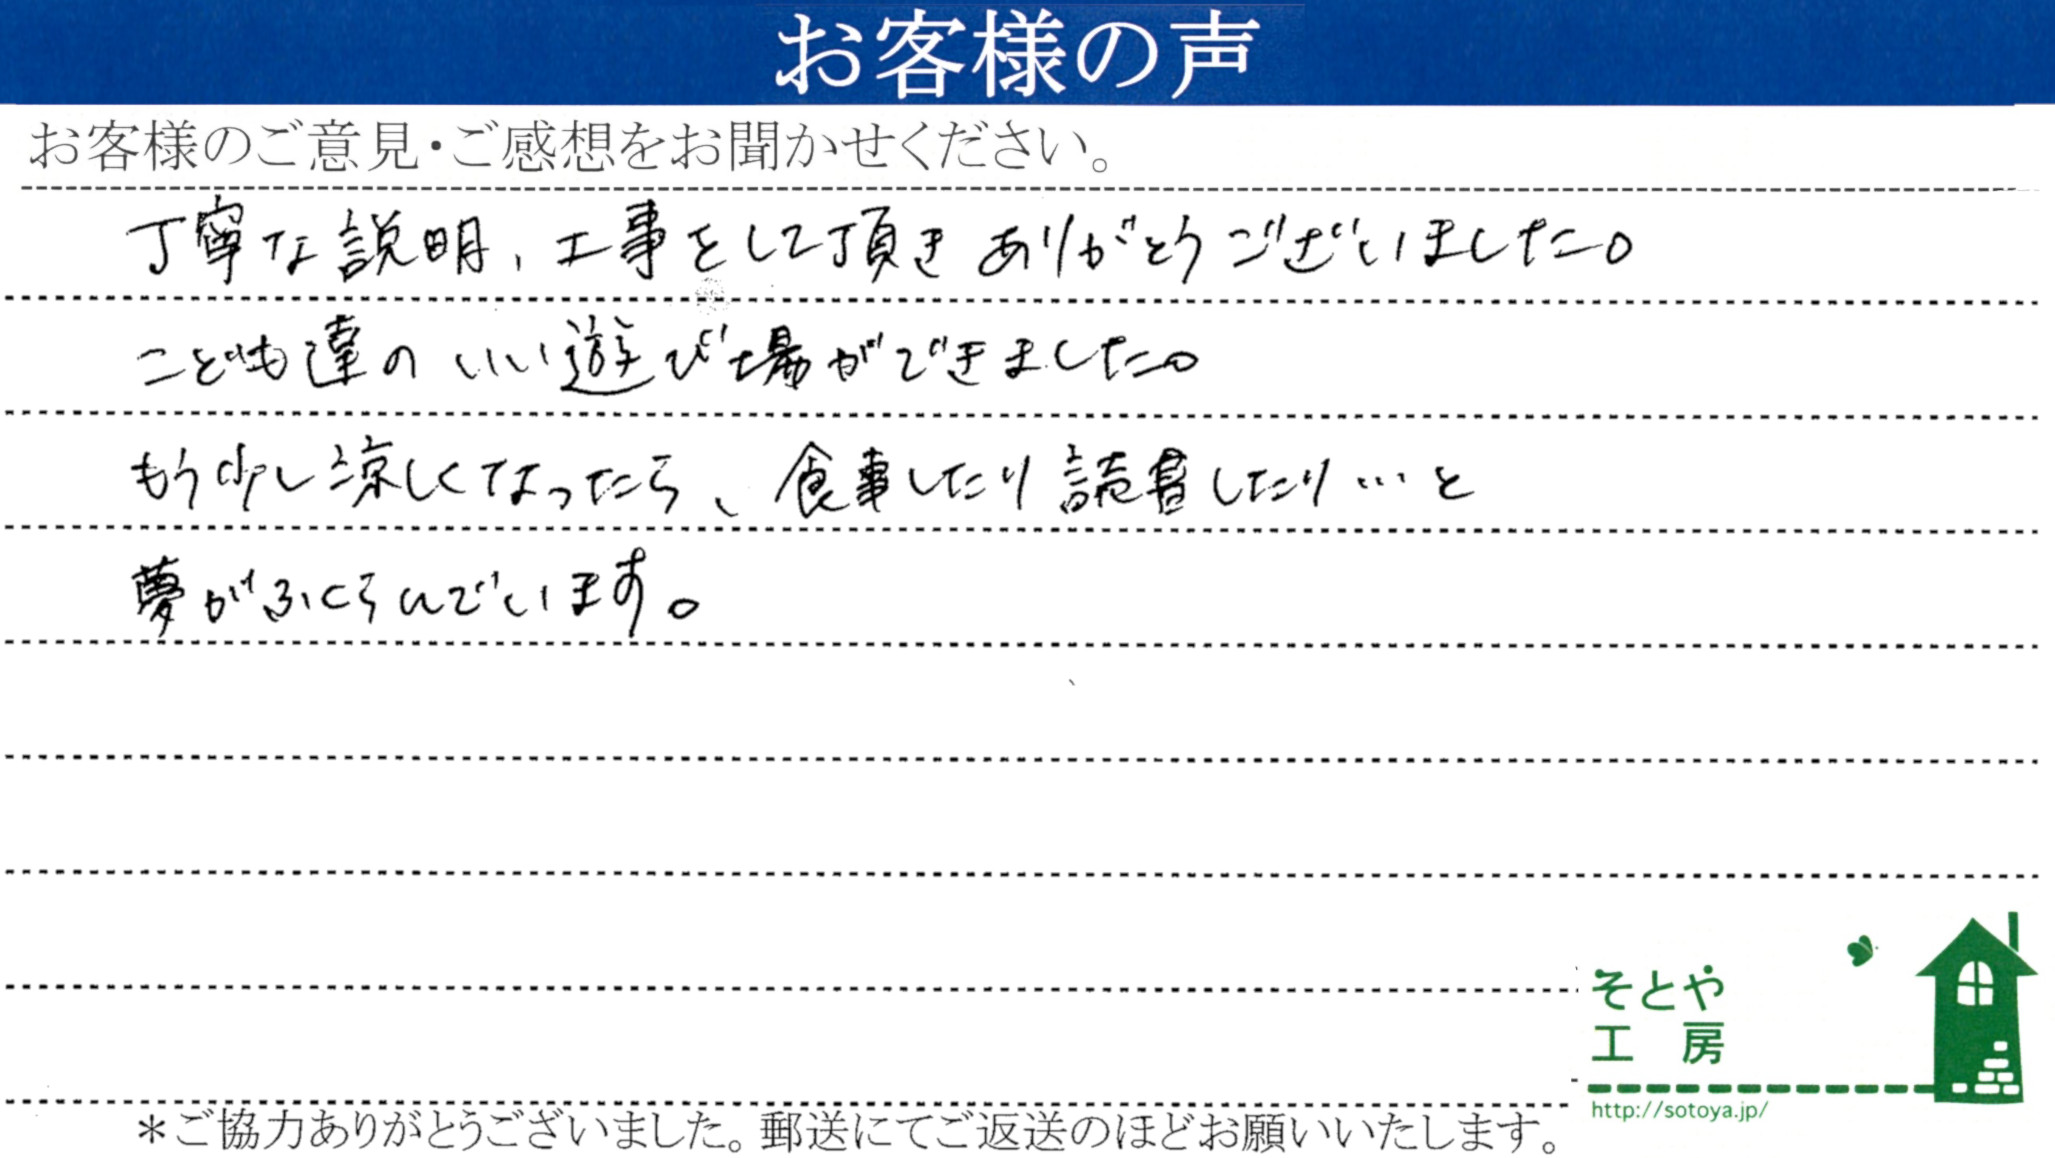 お客様の声
お客様のご意見・ご感想をお聞かせください。
丁寧な説明、工事をして頂き ありがとうございました。
こども達の いい遊び場ができました。
もう少し涼しくなったら、食事したり 読書したり…と
夢がふくらんでいます。
そとや
工 房
http://sotoya.jp/
＊ご協力ありがとうございました。郵送にてご返送のほどお願いいたします。